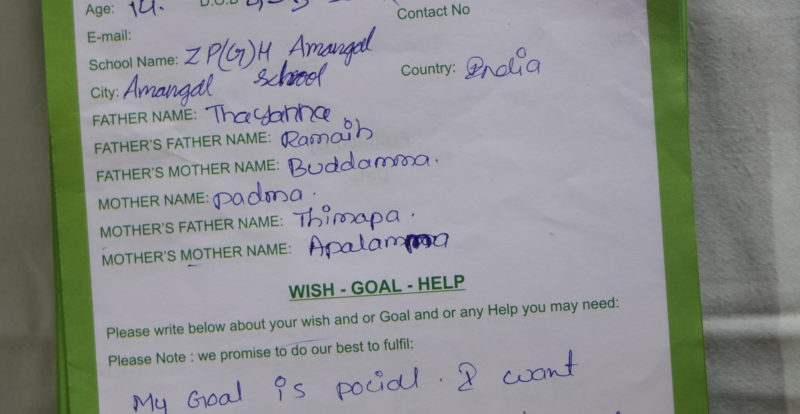 Age: 14. D.O.B
Contact No
E-mail:
School Name: Z P(G)H Amangal school
City: Amangal Country: India
FATHER NAME: Thayanna
FATHER'S FATHER NAME: Ramaih
FATHER'S MOTHER NAME: Buddamma.
MOTHER NAME: padma.
MOTHER'S FATHER NAME: Thimapa.
MOTHER'S MOTHER NAME: Apalamma
WISH - GOAL - HELP
Please write below about your wish and or Goal and or any Help you may need:
Please Note : we promise to do our best to fulfil:
My Goal is . I want